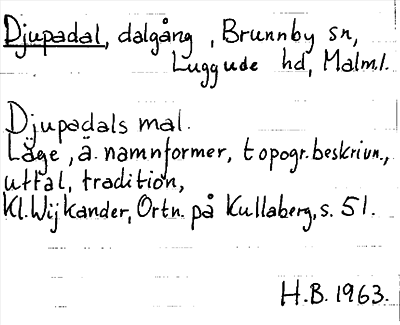 Djupadal, dalgång, Brunnby sn,
Luggude hd, Malml.
Djupadals mal.
Läge, ä. namnformer, topogr. beskrivn.,
uttal, tradition,
Kl. Wijkander, Ortn. på Kullaberg, s. 51.
H.B. 1963.